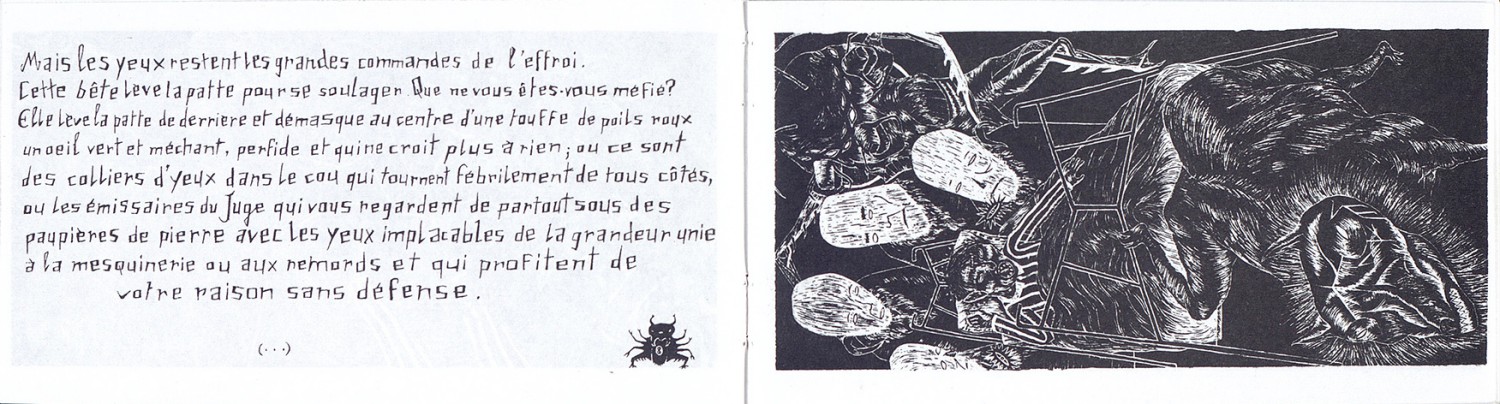 Mais les yeux restent les grandes commandes de l'effroi.
Cette bête lève la patte pour se soulager. Que ne vous êtes-vous méfié?
Elle lève la patte de derrière et démasque au centre d'une touffe de poils roux
un oeil vert et méchant, perfide et qui ne croit plus à rien; ou ce sont
des colliers d'yeux dans le cou qui tournent fébrilement de tous côtés,
ou les émissaires du Juge qui vous regardent de partout sous des
paupières de pierre avec les yeux implacables de la grandeur unie
à la mesquinerie ou aux remords et qui profitent de
votre raison sans défense.
(...)